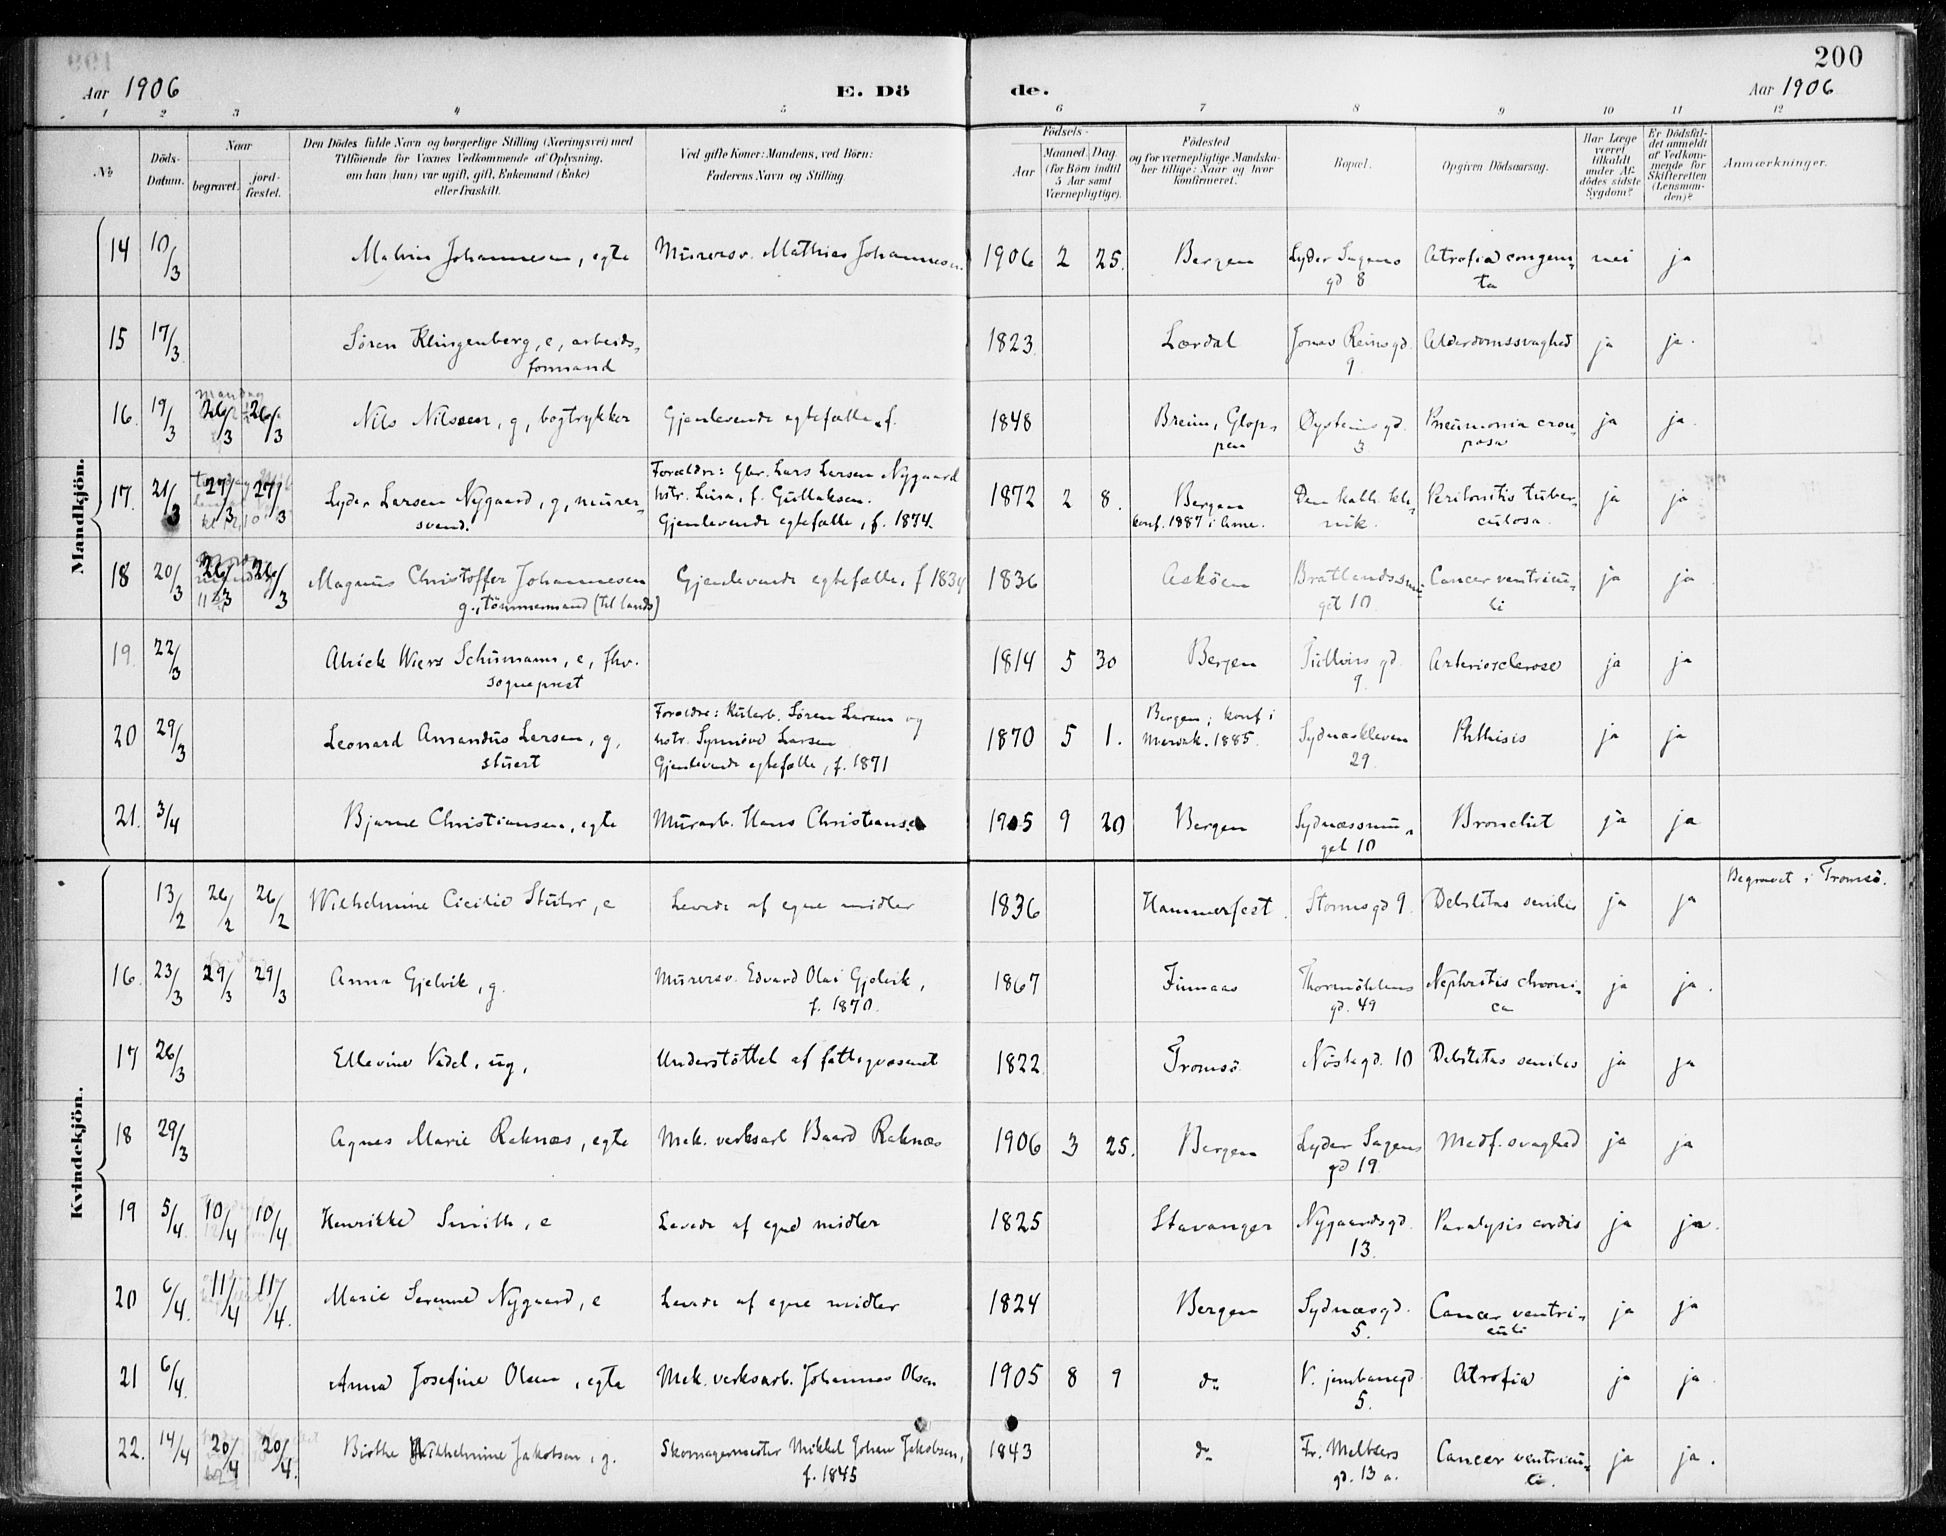 200
Aar 1906 E. Dö de. Aar 1906
1 2 3 4 5 6 7 8 9 10 11 12
No Döds-Datum. Naar begravet. jord-fæstet. Den Dödes fulde Navn og borgerlige Stilling (Næringsvei) med Tilföiende for Voxnes Vedkommende af Oplysning, om han (hun) var ugift, gift, Enkemand (Enke) eller fraskilt. Ved gifte Koner: Mandens, ved Börn: Faderens Navn og Stilling Födsels- Aar Maaned. Dag. (for Börn indtil 5 Aar samt Værnepligtige). Födested og for værnepligtige Mandskaber tillige: Naar og hvor konfirmeret. Bopæl. Opgiven Dödsaarsag. Har Læge været tilkaldt under Afdödes sidste Sygdom? Er Dödsfaldet anmeldt af Vedkommende for Skifteretten (Lensmanden)? Anmærkninger.
Mandkjön.
14 10/3 Malvin Johannesen, egte Murersv. Mathias Johannesen. 1906 2 25. Bergen Lyder Sagens gd 8 Atrofia congenita nei ja
15 17/3 Sören Klingenberg, e, arbeidsformand 1823 Lærdal Jonas Reins gd. 9 Alderdomssvaghed ja ja.
16. 19/3 26/3 26/3 Nils Nilssen, g, bogtrykker Gjenlevende egtefælle f. 1848 Breim, Gloppen Øysteins gd. 3 Pneumonia crouposa ja ja.
17. 21/3 27/3 27/3 Lyder Larsen Nygaard, g, murersvend. Forældre: Gbr. Lars Larsen Nygaard hstr. Lina, f. Gullaksen. Gjenlevende egtefælle, f. 1874. 1872 2 8. Bergen konf. 1887 i Arne. Den kath. klinik. Peritonitis tuberculosa. ja ja
18 20/3 26/3 26/3 Magnus Christoffer Johannesen g., tömmermand (til lands) Gjenlevende egtefælle, f 1834 1836 Asköen Bratlandssmuget 10. Cancer ventriculi ja ja
19. 22/3 Alrick Wiers Schumann, e, fhv. sogneprest 1814 5 30 Bergen Tullins gd. 9. Arteriosclerose ja ja
20 29/3 Leonard Amandus Larsen, g, stuert Forældre: Kularb. Sören Larsen og hstr. Synnöve Larsen Gjenlevende egtefælle, f. 1871 1870 5 1. Bergen; konf i Mariak. 1885. Sydnæskleven 29. Phthisis ja ja
21. 3/4 Bjarne Christiansen, egte Murarb. Hans Christiansen 1905 9 20 Bergen Sydnæssmuget 10 Bronchit ja ja
Kvindekjön.
13/2 26/2 26/2 Wilhelmine Cicilie Stuhr, e Levede af egne midler 1836 Hammerfest. Storms gd 9. Debilitas senilis ja ja Begravet i Tromsö.
16. 23/3 29/3 29/3 Anna Gjelvik, g. Murersv. Edvard Olai Gjelvik, f. 1870. 1867 Finnaas Thormöhlens gd. 49 Nephritis chronica ja ja.
17 26/3 Ellevine Vadel, ug, Understöttet af fattigvæsenet 1822 Tromsö Nöste gd. 10 Debilitas senilis ja ja
18 29/3 Agnes Marie Raknæs, egte Mek. verksarb Baard Raknæs 1906 3 25. Bergen Lyder Sagens gd 19. Medf. svaghed ja ja
19 5/4. 10/4 10/4. Henrikke Smith, e Levede af egne midler 1825 Stavanger Nygaards gd. 13. Paralysis cordis ja ja.
20 6/4. 11/4 11/4. Marie Serenne Nygaard, e Levede af egne midler 1824 Bergen Sydnæs gd. 5. Cancer ventriculi ja ja
21 6/4. Anna Josefine Olsen, egte Mek. verksarb. Johannes Olsen 1905 8 9 do V. jernbanegd. 5. Atrofia ja ja.
22. 14/4 20/4 20/4. Birthe Wilhelmine Jakobsen, g. Skomagermester Mikkel Johan Jakobsen, f. 1845 1843 do Fr. Meltzers gd. 13 a. Cancer ventriculi. ja ja.